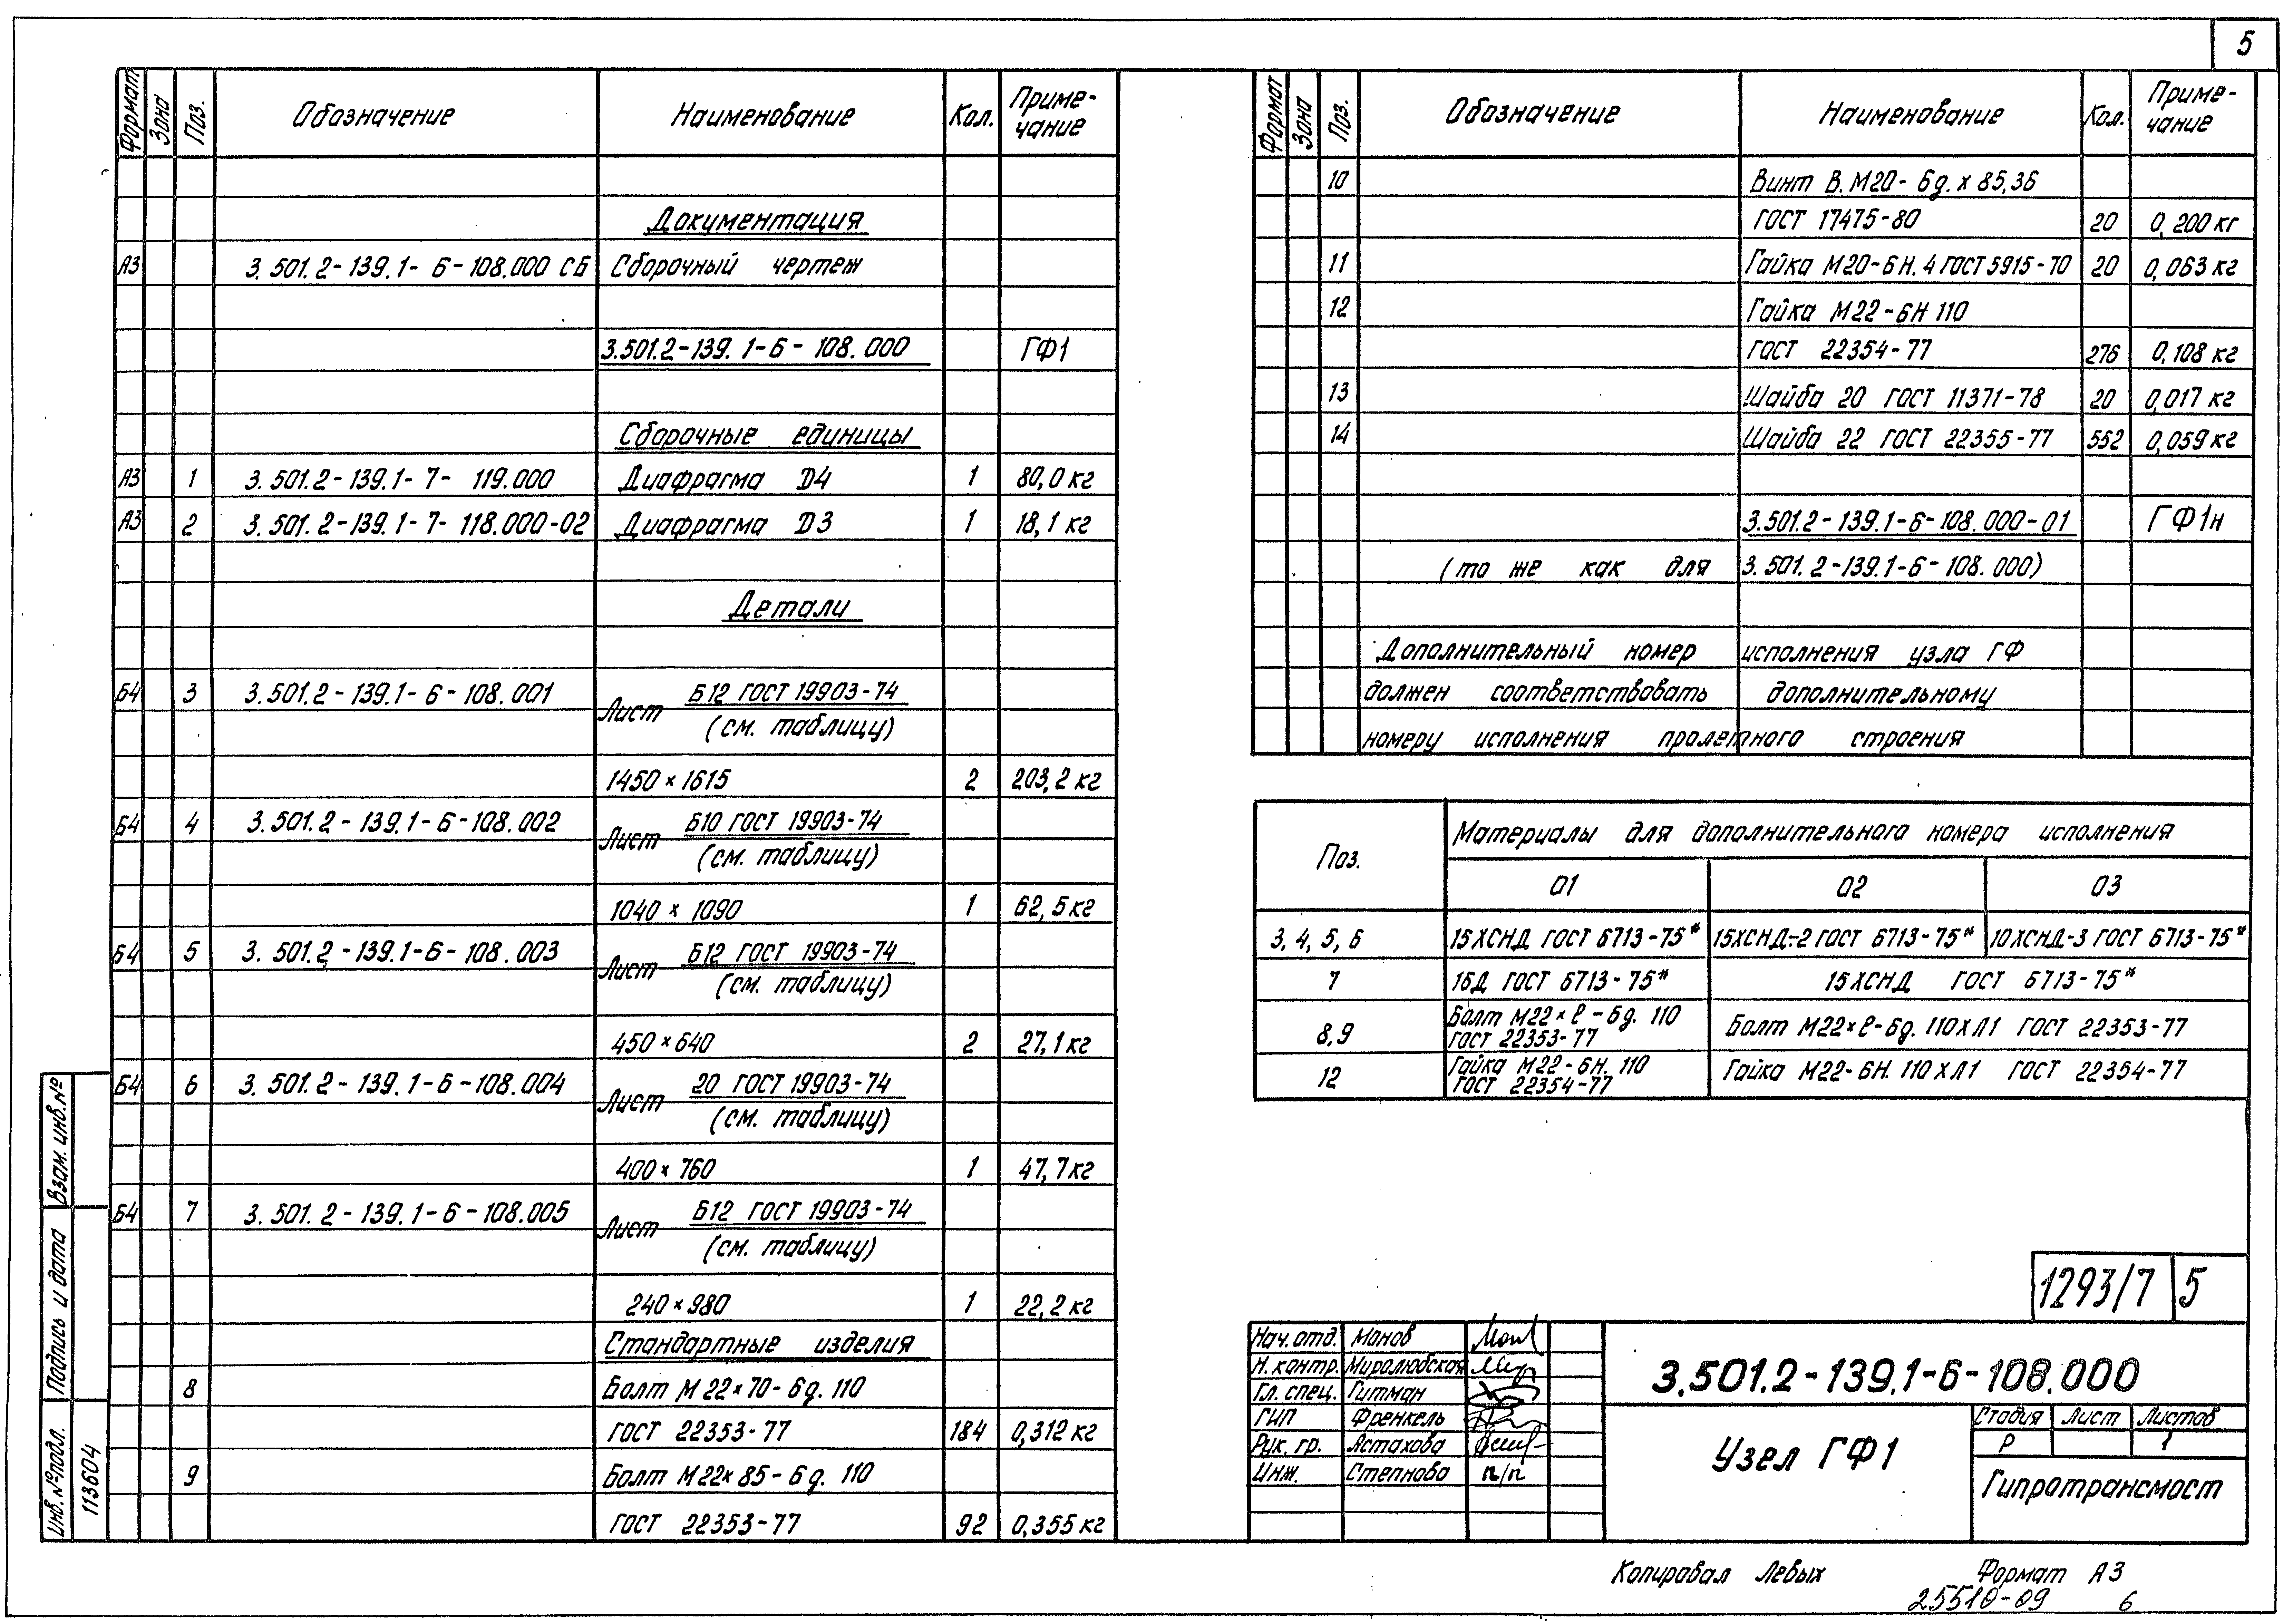 5
Формат Зона Поз. Обозначение Наименование Кол. Приме-
чание
Документация
А3 3.501.2-139.1-6-108.000 СБ Сборочный чертеж
3.501.2-139.1-6-108.000 ГФ1
Сборочные единицы
А3 1 3.501.2-139.1-7-119.000 Диафрагма D4 1 80,0 кг
А3 2 3.501.2-139.1-7-118.000-02 Диафрагма D3 1 18,1 кг
Детали
Б4 3 3.501.2-139.1-6-108.001 Лист Б12 ГОСТ 19903-74
(см. таблицу)
1450×1615 2 203,2 кг
Б4 4 3.501.2-139.1-6-108.002 Лист Б10 ГОСТ 19903-74
(см. таблицу)
1040×1090 1 62,5 кг
Б4 5 3.501.2-139.1-6-108.003 Лист Б12 ГОСТ 19903-74
(см. таблицу)
450×640 2 27,1 кг
Б4 6 3.501.2-139.1-6-108.004 Лист 20 ГОСТ 19903-74
(см. таблицу)
400×760 1 47,7 кг
Б4 7 3.501.2-139.1-6-108.005 Лист Б12 ГОСТ 19903-74
(см. таблицу)
240×980 1 22,2 кг
Стандартные изделия
8 Болт М22×70-6g.110
ГОСТ 22353-77 184 0,312 кг
9 Болт М22×85-6g.110
ГОСТ 22353-77 92 0,355 кг
Формат Зона Поз. Обозначение Наименование Кол. Приме-
чание
10 Винт В.М20-6g.×85,36
ГОСТ 17475-80 20 0,200 кг
11 Гайка М20-6Н.4 ГОСТ 5915-70 20 0,063 кг
12 Гайка М22-6Н 110
ГОСТ 22354-77 276 0,108 кг
13 Шайба 20 ГОСТ 11371-78 20 0,017 кг
14 Шайба 22 ГОСТ 22355-77 552 0,059 кг
3.501.2-139.1-6-108.000-01 ГФ1н
(то же как для 3.501.2-139.1-6-108.000)
Дополнительный номер исполнения узла ГФ
должен соответствовать дополнительному
номеру исполнения пролетного строения
Поз. Материалы для дополнительного номера исполнения
01 02 03
3, 4, 5, 6 15ХСНД ГОСТ 6713-75* 15ХСНД-2 ГОСТ 6713-75* 10ХСНД-3 ГОСТ 6713-75*
7 16Д ГОСТ 6713-75* 15ХСНД ГОСТ 6713-75*
8,9 Болт М22×ℓ-6g. 110
ГОСТ 22353-77 Болт М22×ℓ-6g.110ХЛ1 ГОСТ 22353-77
12 Гайка М22-6Н. 110
ГОСТ 22354-77 Гайка М22-6Н.110ХЛ1 ГОСТ 22354-77
1293/7 5
Нач. отд. Монов
Н. контр. Миролюбская
Гл. спец. Гитман
ГИП Френкель
Рук. гр. Астахова
Инж. Степнова п/п
3.501.2-139.1-6-108.000
Узел ГФ1
Стадия Лист Листов
Р 1
Гипротрансмост
Взам. инв. №
Подпись и дата
Инв. № подл. 113604
Копировал Левых Формат А3
25510-09 6